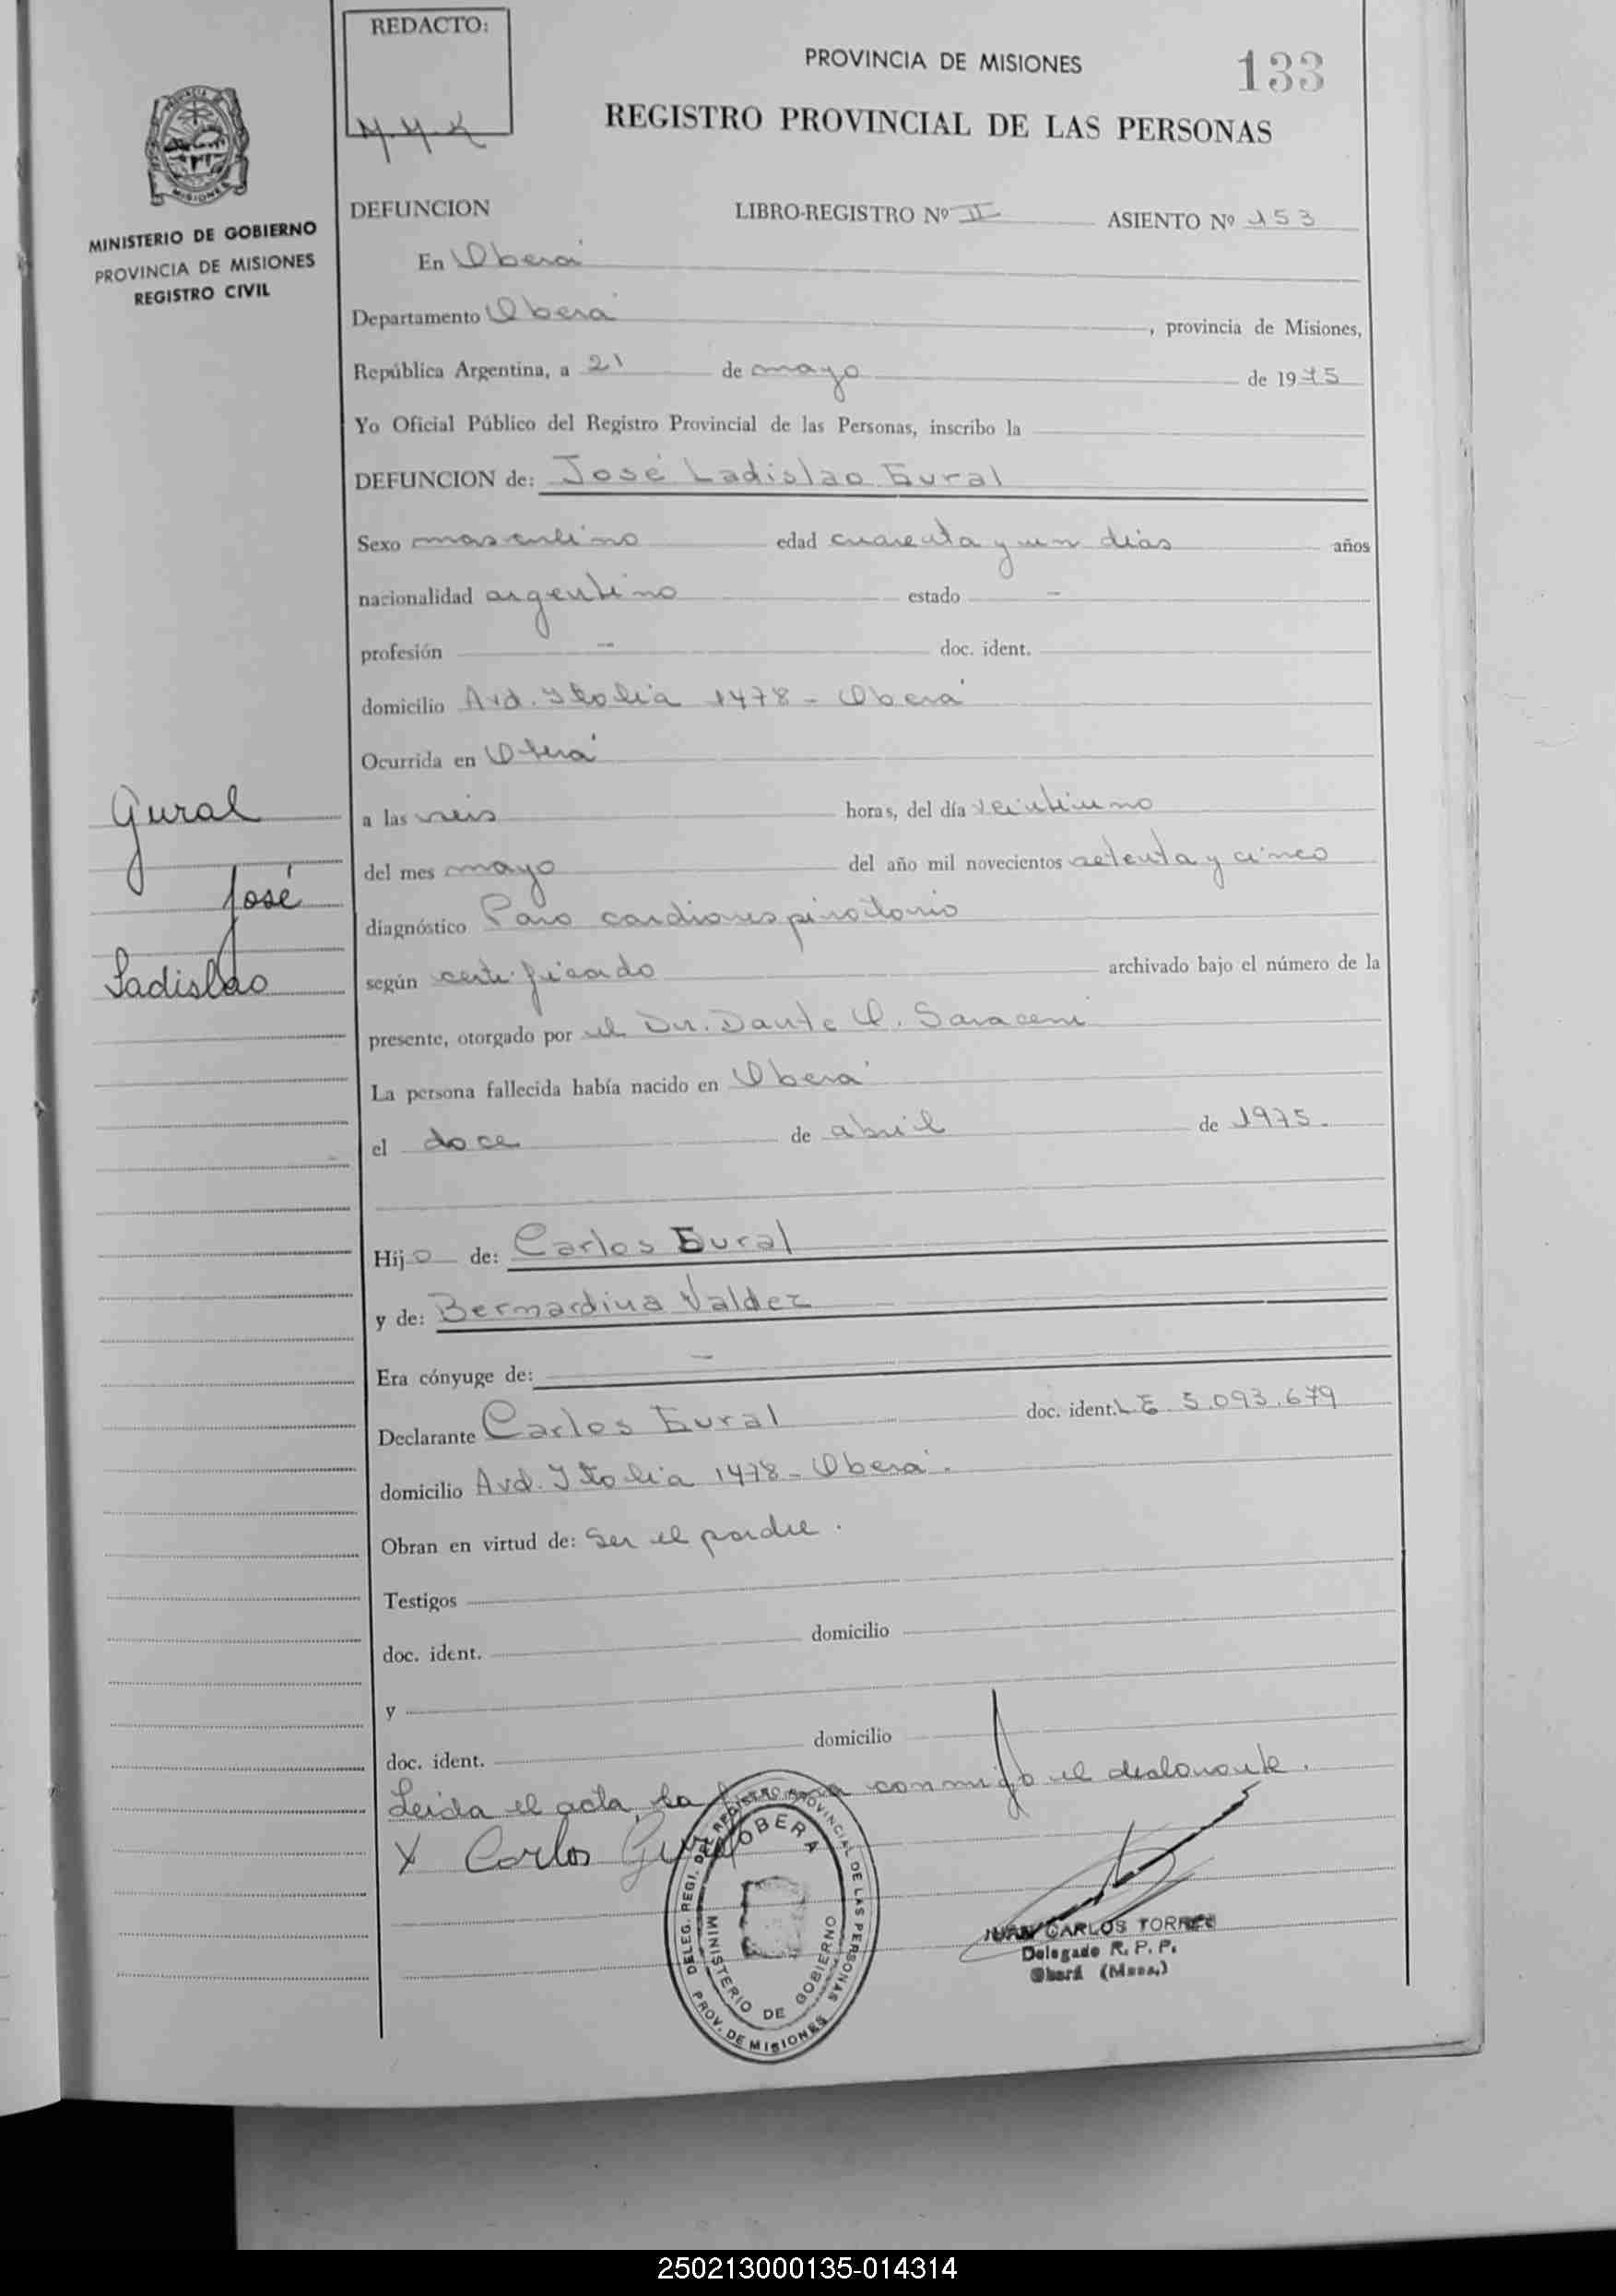 REDACTO:
PROVINCIA DE MISIONES
133
REGISTRO PROVINCIAL DE LAS PERSONAS
MISIONES
MINISTERIO DE GOBIERNO
PROVINCIA DE MISIONES
REGISTRO CIVIL
DEFUNCION LIBRO-REGISTRO Nº II ASIENTO Nº 153
En Oberá
Departamento Oberá, provincia de Misiones,
República Argentina, a 21 de mayo de 1975
Yo Oficial Público del Registro Provincial de las Personas, inscribo la
DEFUNCION de: José Ladislao Gural
Sexo masculino edad cuarenta y un días años
nacionalidad argentino estado -
profesión - doc. ident.
domicilio Avd. Italia 1478 - Oberá
Ocurrida en Oberá
Gural
a las seis horas, del día veintiuno
del mes mayo del año mil novecientos setenta y cinco
José
diagnóstico Paro cardiorespiratorio
Ladislao
según certificado archivado bajo el número de la
presente, otorgado por el Dr. Dante O. Saraceni
La persona fallecida había nacido en Oberá
el doce de abril de 1975.
Hijo de: Carlos Gural
y de: Bernardina Valdez
Era cónyuge de: -
Declarante Carlos Gural doc. ident. L E 5.093.679
domicilio Avd. Italia 1478 - Oberá.
Obran en virtud de: Ser el padre.
Testigos
doc. ident. domicilio
y
doc. ident. domicilio
Leida el acta, la firma conmigo el declarante.
X Carlos Gural
DELEG. REGI. DEL REGISTRO PROVINCIAL DE LAS PERSONAS
OBERA
MINISTERIO DE GOBIERNO
PROV. DE MISIONES
JUAN CARLOS TORRES
Delegado R. P. P.
Oberá (Mnes.)
250213000135-014314